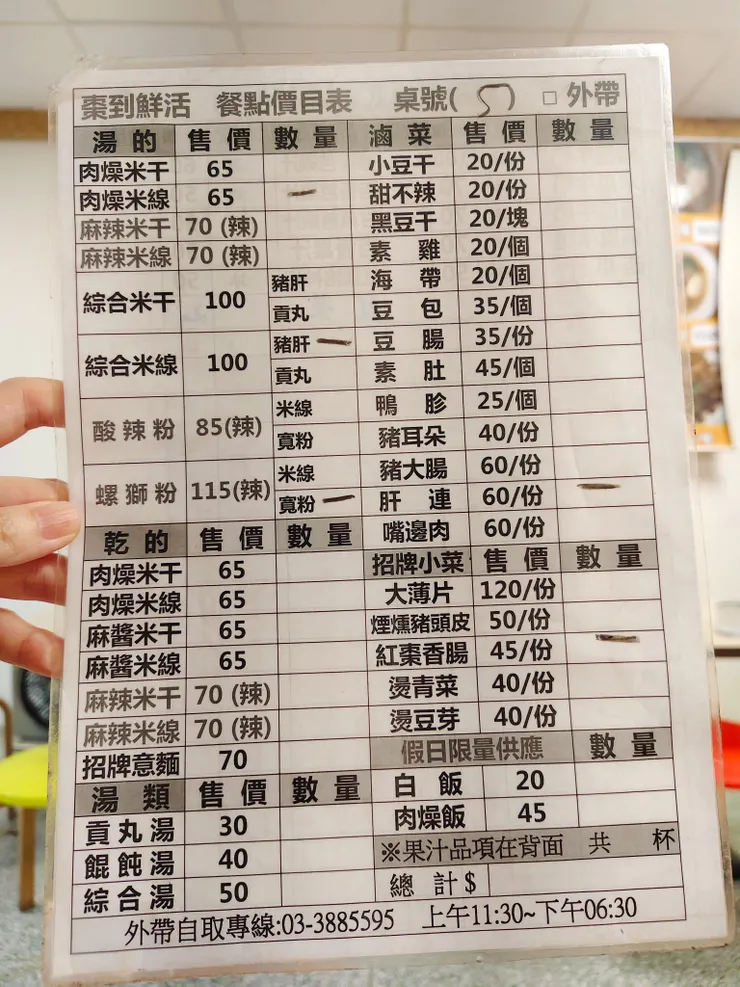 棗到鮮活 餐點價目表 桌號( 5 ) □ 外帶
湯的 售價 數量
肉燥米干 65
肉燥米線 65 一
麻辣米干 70 (辣)
麻辣米線 70 (辣)
綜合米干 100 豬肝
貢丸
綜合米線 100 豬肝 一
貢丸
酸辣粉 85(辣) 米線
寬粉
螺獅粉 115(辣) 米線
寬粉 一
乾的 售價 數量
肉燥米干 65
肉燥米線 65
麻醬米干 65
麻醬米線 65
麻辣米干 70 (辣)
麻辣米線 70 (辣)
招牌意麵 70
湯類 售價 數量
貢丸湯 30
餛飩湯 40
綜合湯 50
滷菜 售價 數量
小豆干 20/份
甜不辣 20/份
黑豆干 20/塊
素雞 20/個
海帶 20/個
豆包 35/個
豆腸 35/份
素肚 45/個
鴨胗 25/個
豬耳朵 40/份
豬大腸 60/份
肝連 60/份 一
嘴邊肉 60/份
招牌小菜 售價 數量
大薄片 120/份
煙燻豬頭皮 50/份
紅棗香腸 45/份 一
燙青菜 40/份
燙豆芽 40/份
假日限量供應 數量
白飯 20
肉燥飯 45
※果汁品項在背面 共 杯
總計$
外帶自取專線:03-3885595 上午11:30~下午06:30